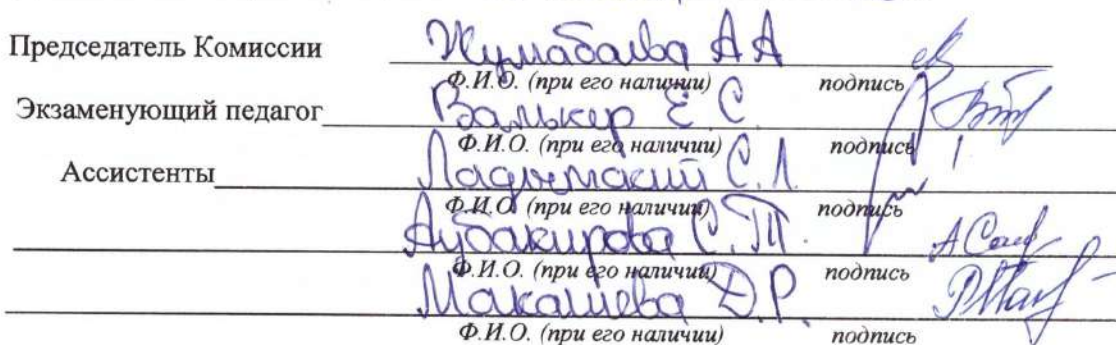 Председатель Комиссии Жумабаева А А
Ф.И.О. (при его наличии) подпись
Экзаменующий педагог Валькер Е С
Ф.И.О. (при его наличии) подпись
Ассистенты С.Л.
Ф.И.О. (при его наличии) подпись
Аубакирова С.Т.
Ф.И.О. (при его наличии) подпись
Макашева Д.Р.
Ф.И.О. (при его наличии) подпись